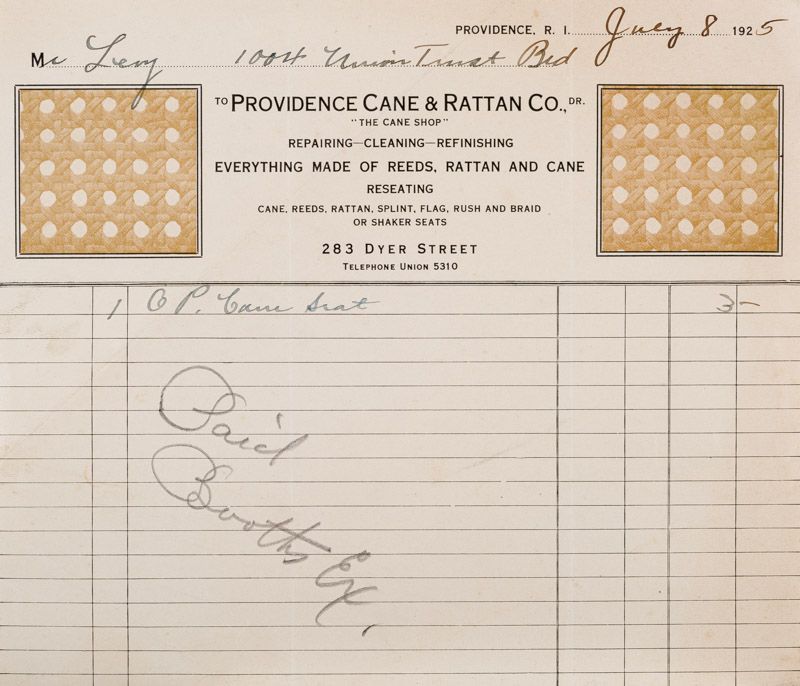 PROVIDENCE, R. I. July 8 1925
Mr Levy 1004 Union Trust Bld
TO PROVIDENCE CANE & RATTAN CO., DR.
"THE CANE SHOP"
REPAIRING—CLEANING—REFINISHING
EVERYTHING MADE OF REEDS, RATTAN AND CANE
RESEATING
CANE, REEDS, RATTAN, SPLINT, FLAG, RUSH AND BRAID
OR SHAKER SEATS
283 DYER STREET
TELEPHONE UNION 5310
1 O P. Cane Seat 3—
Paid
Booths Ex.